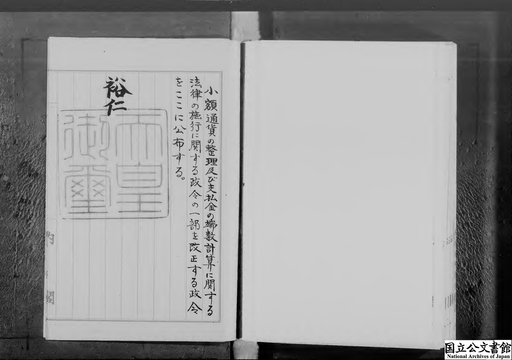 小額通貨の整理及び支払金の端数計算に関する
法律の施行に関する政令の一部を改正する政令
をここに公布する。
裕仁
天皇
御璽
内閣
国立公文書館
National Archives of Japan